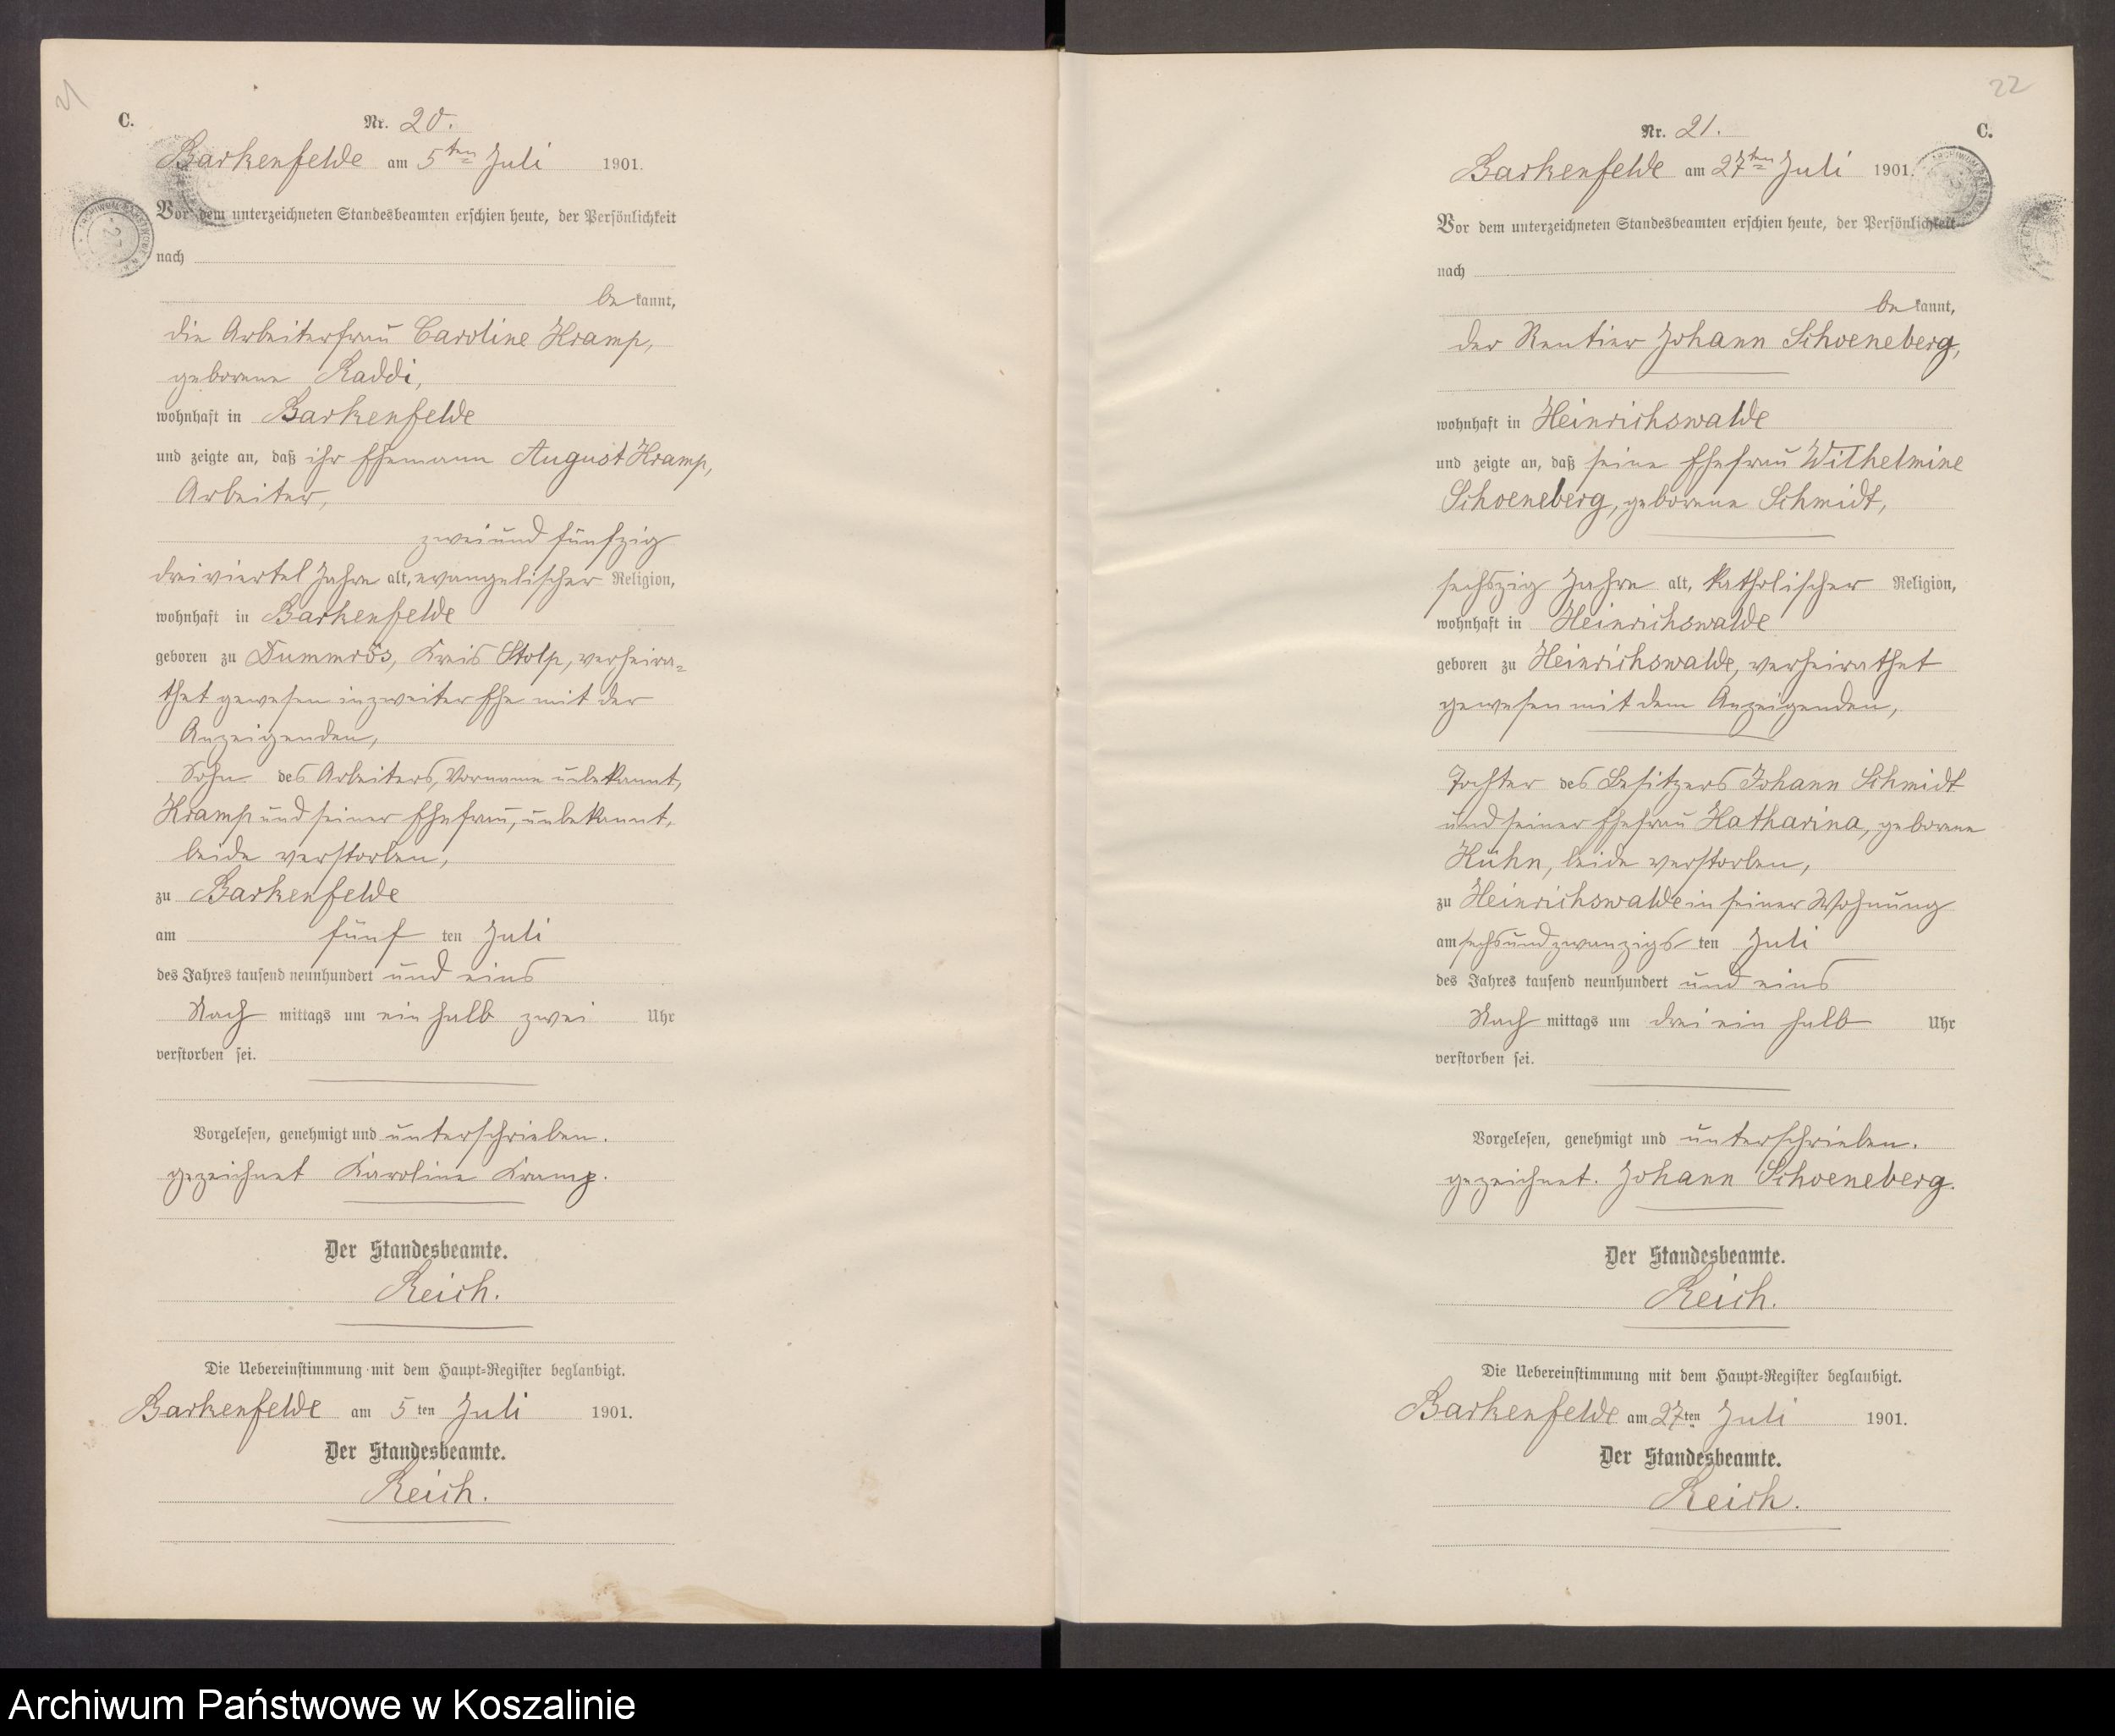 21
C.
Nr. 20.
Barkenfelde am 5ten Juli 1901.
Vor dem unterzeichneten Standesbeamten erschien heute, der Persönlichkeit
nach
be kannt,
die Arbeiterfrau Caroline Kramp,
geborene Raddi,
wohnhaft in Barkenfelde
und zeigte an, daß ihr Ehemann August Kramp,
Arbeiter,
zweiundfünfzig
dreiviertel Jahre alt, evangelischer Religion,
wohnhaft in Barkenfelde
geboren zu Dummrös, Kreis Stolp, verheira=
thet gewesen in zweiter Ehe mit der
Anzeigenden,
Sohn des Arbeiters, Vorname unbekannt,
Kramp und seiner Ehefrau, unbekannt,
beide verstorben,
zu Barkenfelde
am fünf ten Juli
des Jahres tausend neunhundert und eins
Nach mittags um ein halb zwei Uhr
verstorben sei.
Vorgelesen, genehmigt und unterschrieben.
gezeichnet Karoline Kramp.
Der Standesbeamte.
Reich.
Die Uebereinstimmung mit dem Haupt=Register beglaubigt.
Barkenfelde am 5 ten Juli 1901.
Der Standesbeamte.
Reich.
22
C.
Nr. 21.
Barkenfelde am 27ten Juli 1901.
Vor dem unterzeichneten Standesbeamten erschien heute, der Persönlichkeit
nach
be kannt,
der Rentier Johann Schoeneberg,
wohnhaft in Heinrichswalde
und zeigte an, daß seine Ehefrau Wilhelmine
Schoeneberg, geborene Schmidt,
sechszig Jahre alt, katholischer Religion,
wohnhaft in Heinrichswalde
geboren zu Heinrichswalde, verheirathet
gewesen mit dem Anzeigenden,
Tochter des Besitzers Johann Schmidt
und seiner Ehefrau Katharina, geborene
Kühn, beide verstorben,
zu Heinrichswalde in seiner Wohnung
am sechsundzwanzigs ten Juli
des Jahres tausend neunhundert und eins
Nach mittags um drei ein halb Uhr
verstorben sei.
Vorgelesen, genehmigt und unterschrieben.
gezeichnet. Johann Schoeneberg.
Der Standesbeamte.
Reich.
Die Uebereinstimmung mit dem Haupt=Register beglaubigt.
Barkenfelde am 27ten Juli 1901.
Der Standesbeamte.
Reich.
Archiwum Państwowe w Koszalinie